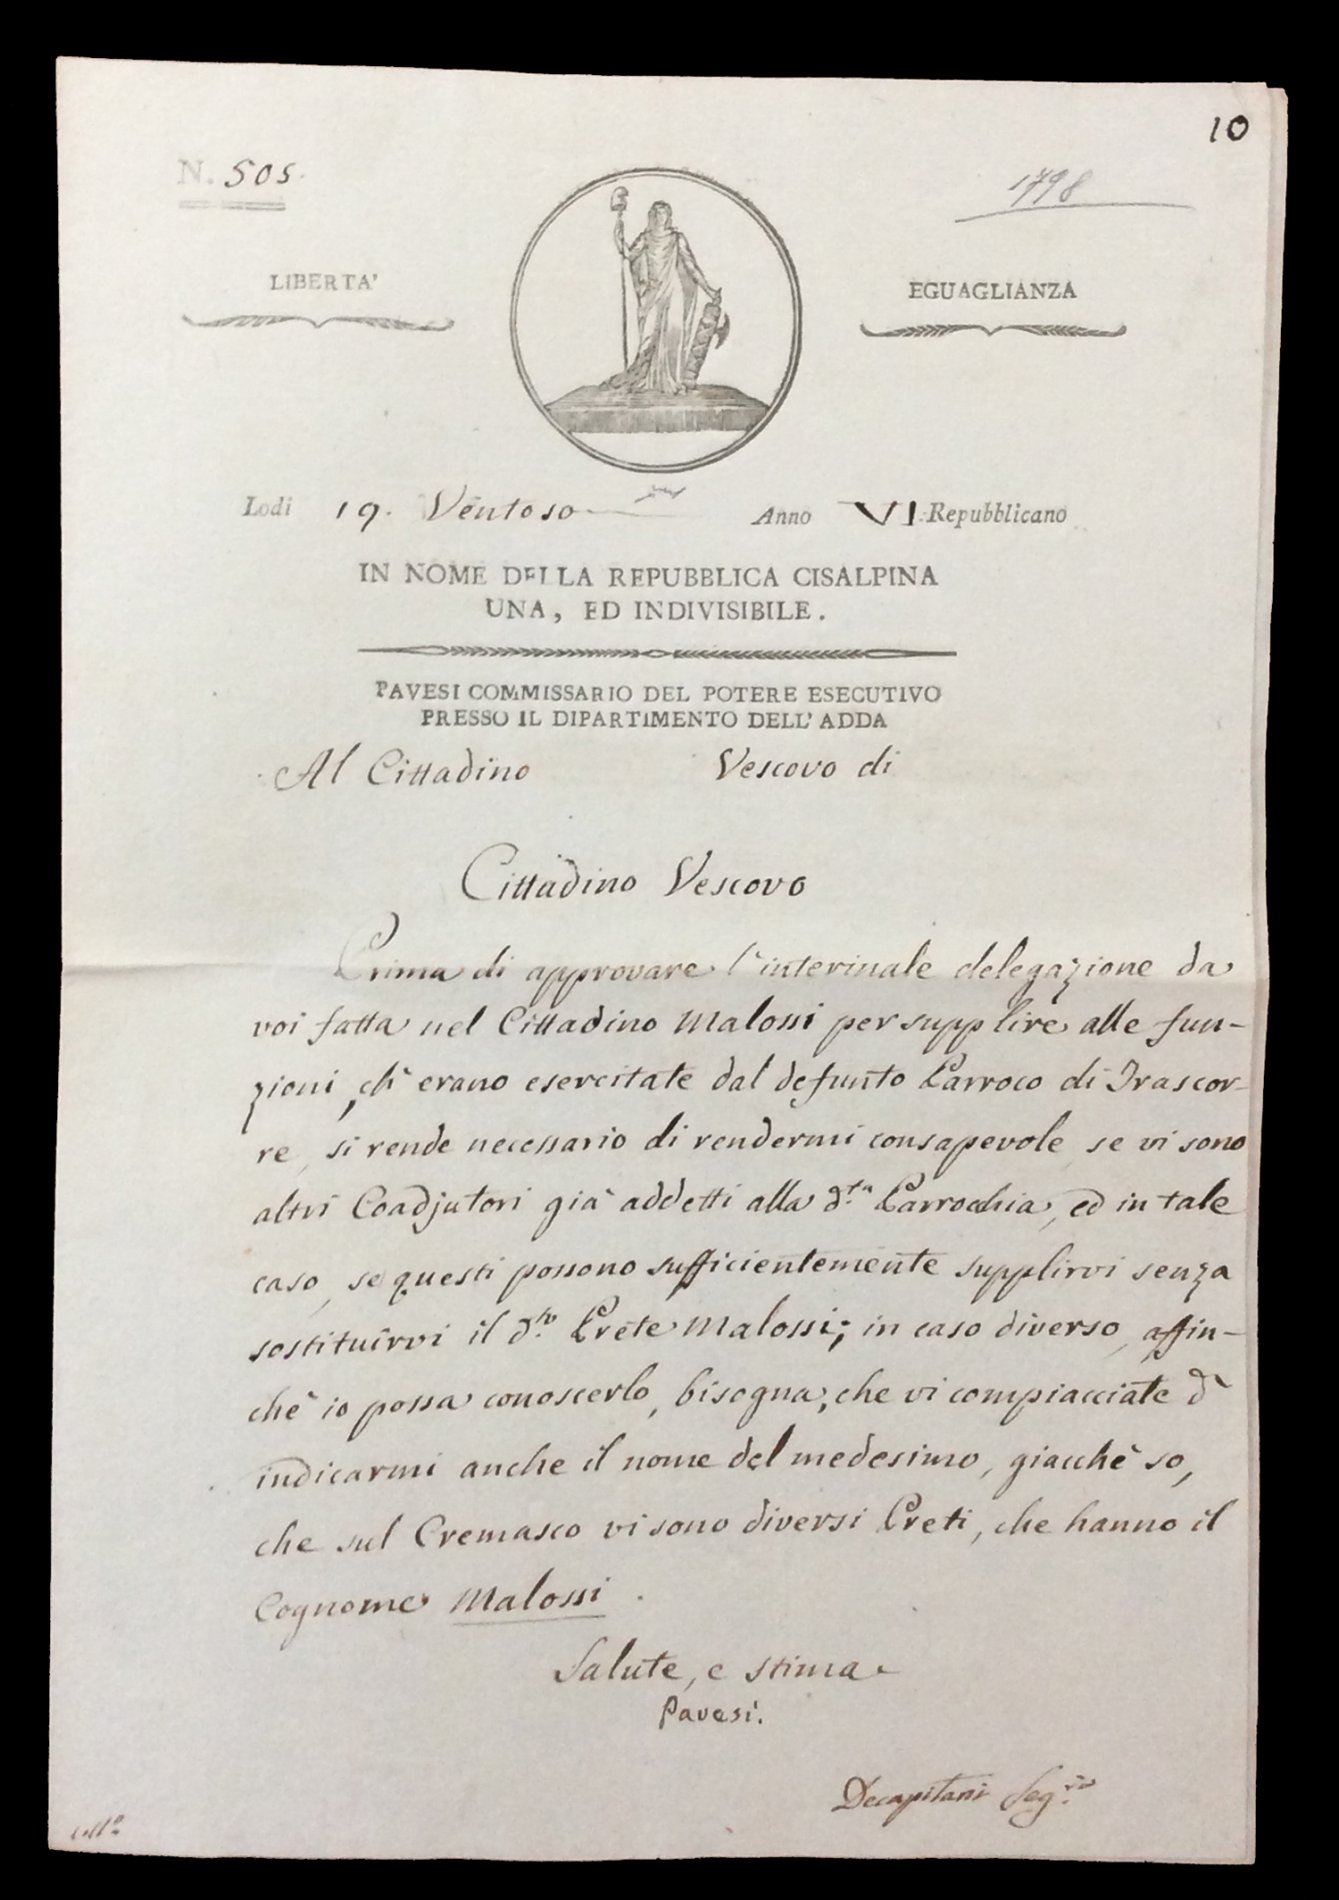 10
N. 505.
1798
LIBERTA'
EGUAGLIANZA
Lodi 19. Ventoso Anno VI. Repubblicano
IN NOME DELLA REPUBBLICA CISALPINA
UNA, ED INDIVISIBILE.
PAVESI COMMISSARIO DEL POTERE ESECUTIVO
PRESSO IL DIPARTIMENTO DELL' ADDA
Al Cittadino Vescovo di
Cittadino Vescovo
Prima di approvare l'interinale delegazione da
voi fatta nel Cittadino Malossi per supplire alle fun-
zioni, ch' erano esercitate dal defunto Parroco di Trascor-
re, si rende necessario di rendermi consapevole, se vi sono
altri Coadjutori già addetti alla d.ta Parrocchia, ed in tale
caso, se questi possono sufficientemente supplirvi senza
sostituirvi il d.to Prete Malossi; in caso diverso, affin-
chè io possa conoscerlo, bisogna, che vi compiacciate d'
indicarmi anche il nome del medesimo, giacchè so,
che sul Cremasco vi sono diversi Preti, che hanno il
Cognome Malossi.
Salute, e stima
Pavesi.
Decapitani Seg.rio